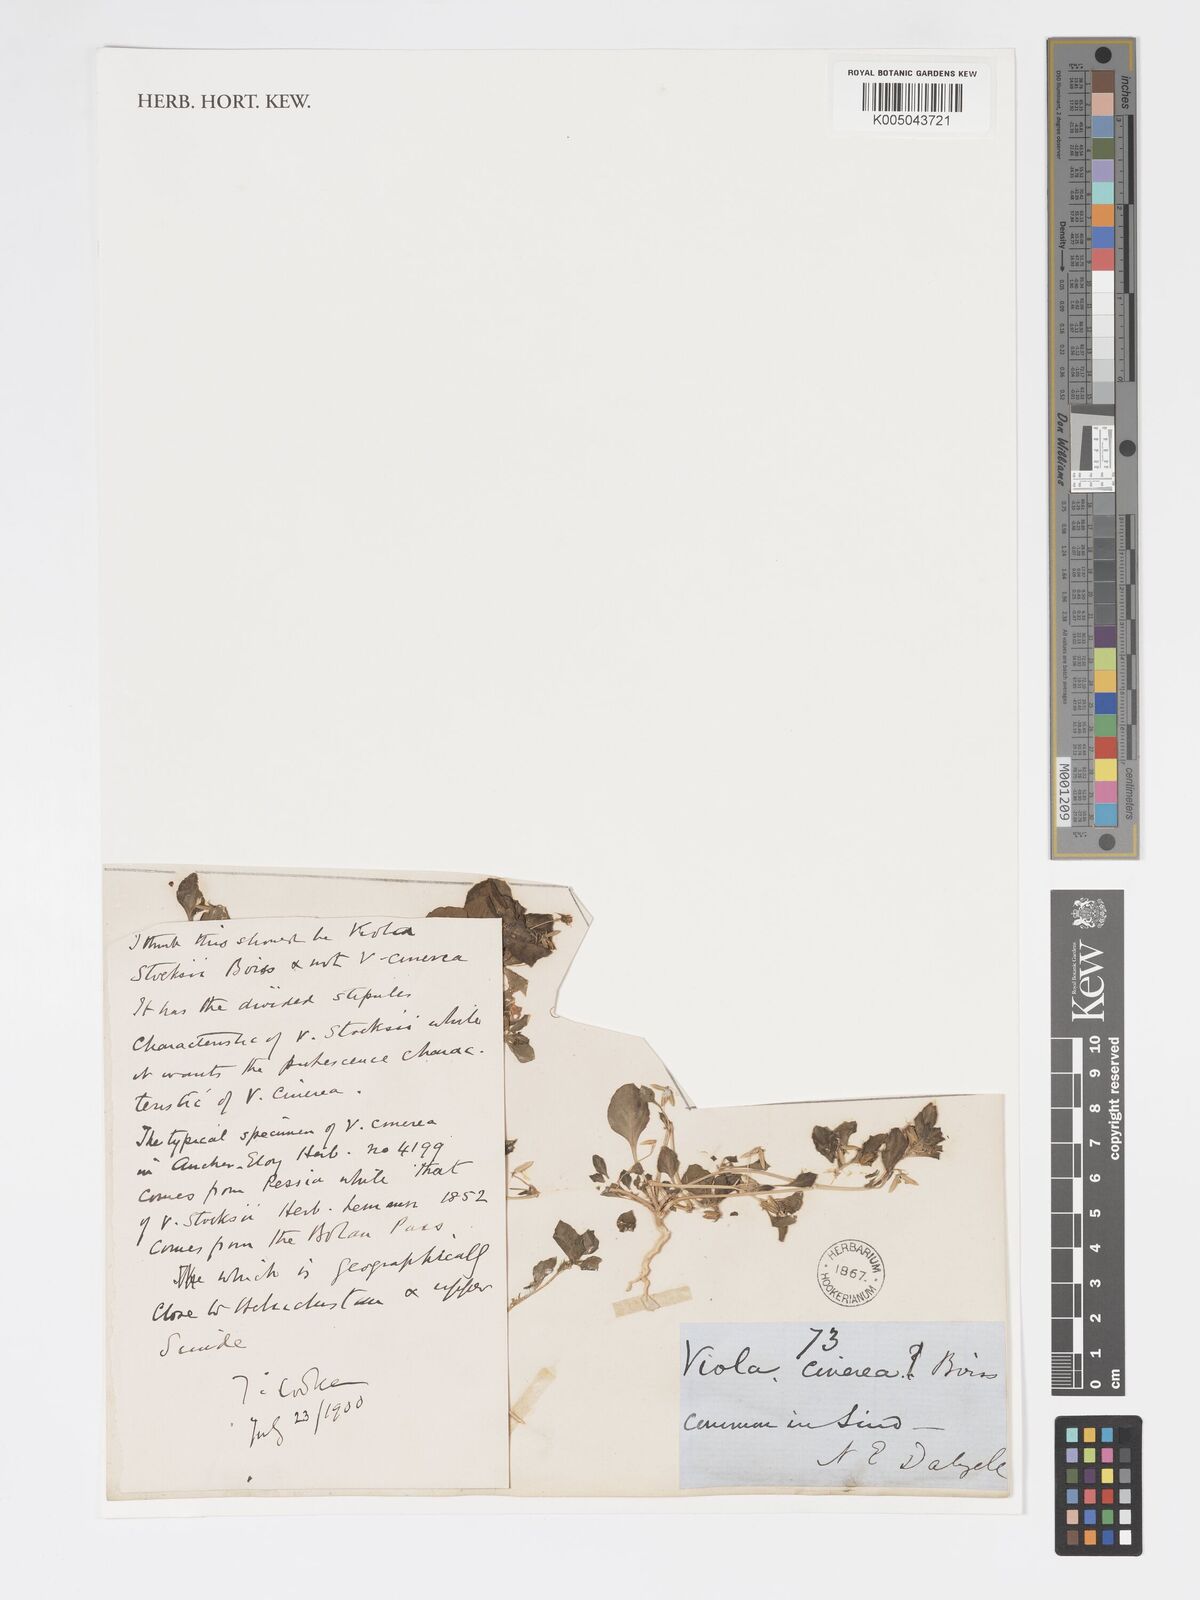 HERB. HORT. KEW.
ROYAL BOTANIC GARDENS KEW
K005043721
I think this should be Viola
Stocksii Boiss & not V. cinerea
It has the divided stipules
characteristic of V. Stocksii while
it wants the pubescence charac-
teristic of V. cinerea.
The typical specimen of V. cinerea
in Aucher-Eloy Herb. no 4199
comes from Persia while that
of V. Stocksii Herb. Lemann 1852
comes from the Bolan Pass
which is geographically
close to Beluchistan & upper
Scinde
T. Cooke
July 23/1900
HERBARIUM
1867.
HOOKERIANUM
73
Viola. cinerea? Boiss
common in Sind —
N E Dalzell
inches
centimeters
Density
Don Williams
M001209
Royal Botanic Gardens
Kew
copyright reserved
0 1 2 3 4 5 6 7 8 9 10
cm